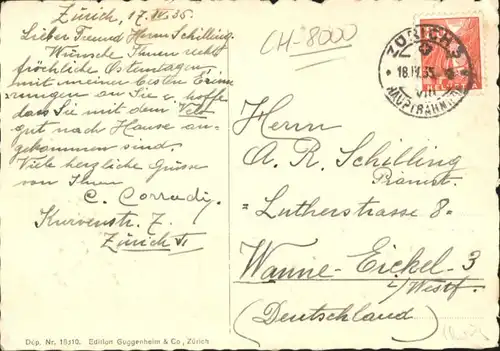 Zürich, 17. IV. 35.
Lieber Freund Herrn Schilling.
Wünsche Ihnen recht
fröhliche Ostertagen,
mit meiner besten Erinne
rungen an Sie & hoffe
dass Sie mit dem Velo
gut nach Hause an-
gekommen sind.
Viele herzliche Grüsse
von Ihrem
C. Corradi,
Kurvenstr. 7.
Zürich 6
Dep. Nr. 16110. Edition Guggenheim & Co., Zürich
CH-8000
ZÜRICH 3
18.IV.35
VIII
HAUPTBAHNH
Herrn
A. R. Schilling
Pianist.
=Lutherstrasse 8=
Wanne-Eickel-3
i/Westf.
(Deutschland)